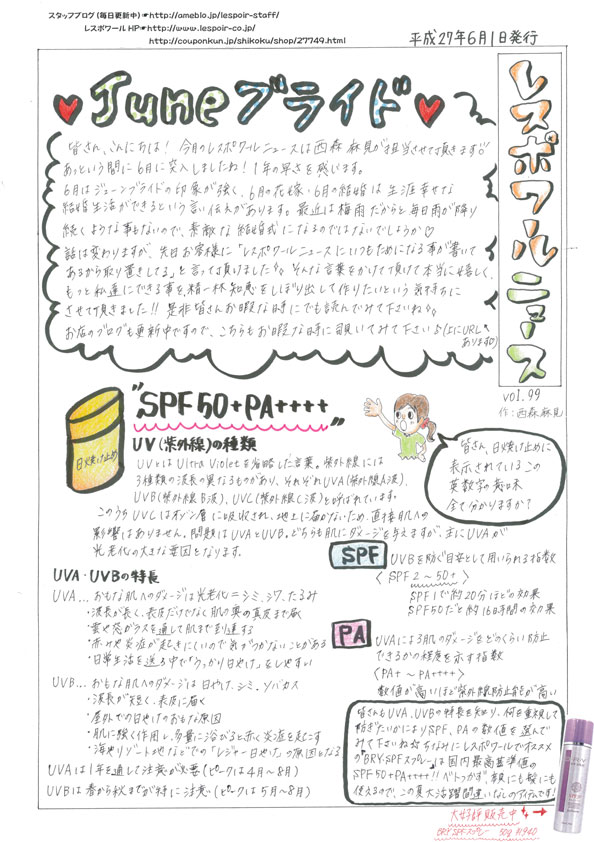 スタッフブログ(毎日更新中)☛http://ameblo.jp/lespoir-staff/
レスポワールHP☛http://www.lespoir-co.jp/
http://couponkun.jp/shikoku/shop/27749.html
平成27年6月1日発行
レスポワールニュース
vol.99
作:西森麻見
♥Juneブライド♥
皆さん、こんにちは! 今月のレスポワールニュースは西森麻見が担当させて頂きます
あっという間に6月に突入しましたね!1年の早さを感じます。
6月はジューンブライドの印象が強く、6月の花嫁・6月の結婚は生涯幸せな
結婚生活ができるという言い伝えがあります。最近は梅雨だからと毎日雨が降り
続くような事もないので、素敵な結婚式になるのではないでしょうか♡
話は変わりますが、先日お客様に「レスポワールニュースにいつもためになる事が書いて
あるから取り置きしてる」と言って頂けました。そんな言葉をかけて頂けて本当に嬉しく、
もっと私達にできる事を、精一杯知恵をしぼり出して作りたいという気持ちに
させて頂きました!! 是非皆さんお暇な時にでも読んでみて下さいね
お店のブログも更新中ですので、こちらもお暇な時に覗いてみて下さい♪(上にURL
あります)
日焼け止め
"SPF50+PA++++"
UV(紫外線)の種類
UVとはUltra Violetを省略した言葉。紫外線には
3種類の波長の異なるものがあり、それぞれUVA(紫外線A波)、
UVB(紫外線B波)、UVC(紫外線C波)と呼ばれています。
このうちUVCはオゾン層に吸収され、地上に届かないため、直接肌への
影響はありません。問題はUVAとUVB。どちらも肌にダメージを与えますが、主にUVAが
光老化の大きな要因となります。
皆さん、日焼け止めに
表示されているこの
英数字の意味
全て分かりますか?
UVA・UVBの特長
UVA…おもな肌へのダメージは光老化=シミ、シワ、たるみ
・波長が長く、表皮だけでなく肌の奥の真皮まで届く
・雲や窓ガラスを通して肌まで到達する
・赤みや炎症が起きにくいので気がつかないことがある
・日常生活を送る中で「うっかり日やけ」をしやすい
UVB…おもな肌へのダメージは日やけ、シミ、ソバカス
・波長が短く、表皮に届く
・屋外での日やけのおもな原因
・肌に強く作用し、多量に浴びると赤く炎症を起こす
・海やリゾート地などでの「レジャー日やけ」の原因となる
UVAは1年を通して注意が必要(ピークは4月~8月)
UVBは春から秋までが特に注意(ピークは5月~8月)
SPF
UVBを防ぐ目安として用いられる指数
<SPF2~50+>
SPF1で約20分ほどの効果
SPF50だと約16時間の効果
PA
UVAによる肌のダメージをどのくらい防止
できるかの程度を示す指数
<PA+~PA++++>
数値が高いほど紫外線防止能が高い
皆さんもUVA、UVBの特長を知り、何を重視して
防ぎたいかによりSPF、PAの数値を選んで
みて下さいね☆ちなみにレスポワールでオススメ
の"BRY SPFスプレー"は国内最高基準値の
SPF50+PA++++!! ベトつかず、顔にも髪にも
使えるので、この夏大活躍間違いなしのアイテムです!
大好評販売中
BRY SPFスプレー 50g ¥1940
BRY